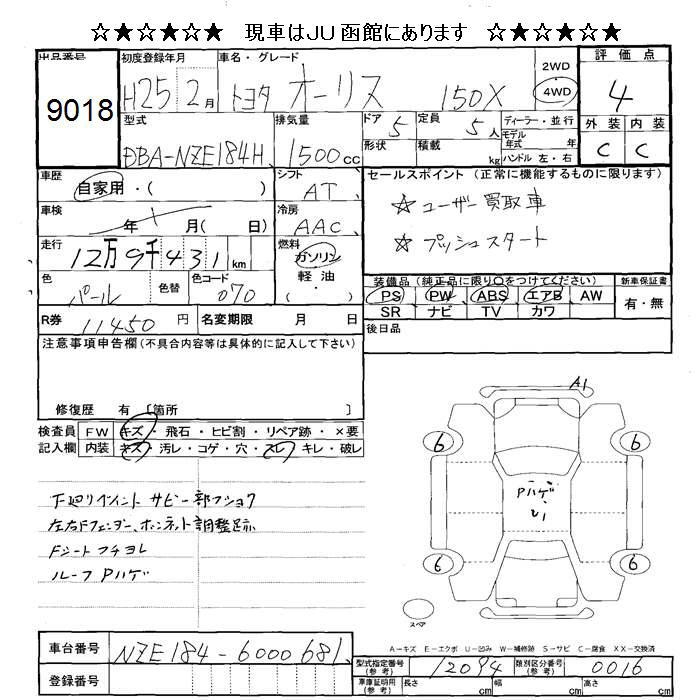 ☆★☆★☆★ 現車はJU函館にあります ☆★☆★☆★
出品番号 初度登録年月 車名・グレード 評価点
9018 H25 2月 トヨタ オーリス 150X 2WD 4WD 4
型式 排気量 ドア 5 定員 5人 ディーラー・並行 外装 内装
DBA-NZE184H 1500cc 形状 積載 kg モデル年式 年 C C
ハンドル 左・右
車歴 自家用・( ) シフト AT セールスポイント (正常に機能するものに限ります)
車検 年 月( 日) 冷房 AAC ☆ユーザー買取車
走行 12万9千431km 燃料 ガソリン 軽油 ( ・ ) ☆プッシュスタート
色 パール 色替 色コード 070 装備品 (純正品に限り○をつけてください) 新車保証書
PS PW ABS エアB AW 有・無
SR ナビ TV カワ
R券 11450円 名変期限 月 日 後日品
注意事項申告欄 (不具合内容等は具体的に記入して下さい)
修復歴 有 [箇所 ]
検査員 FW キズ・飛石・ヒビ割・リペア跡・×要
記入欄 内装 キズ・汚レ・コゲ・穴・スレ・キレ・破レ
A1
6 6
Pハゲ
U1
6 6
スペア
下廻りペイント サビ一部フショク
左右Fフェンダー、ボンネット調整跡
Fシートフチヨレ
ルーフPハゲ
A-キズ E-エクボ U-凹み W-補修跡 S-サビ C-腐食 XX-交換済
車台番号 NZE184-6000681 型式指定番号(参考) 12094 類別区分番号(参考) 0016
登録番号 車庫証明用(参考) 長さ cm 幅 cm 高さ cm